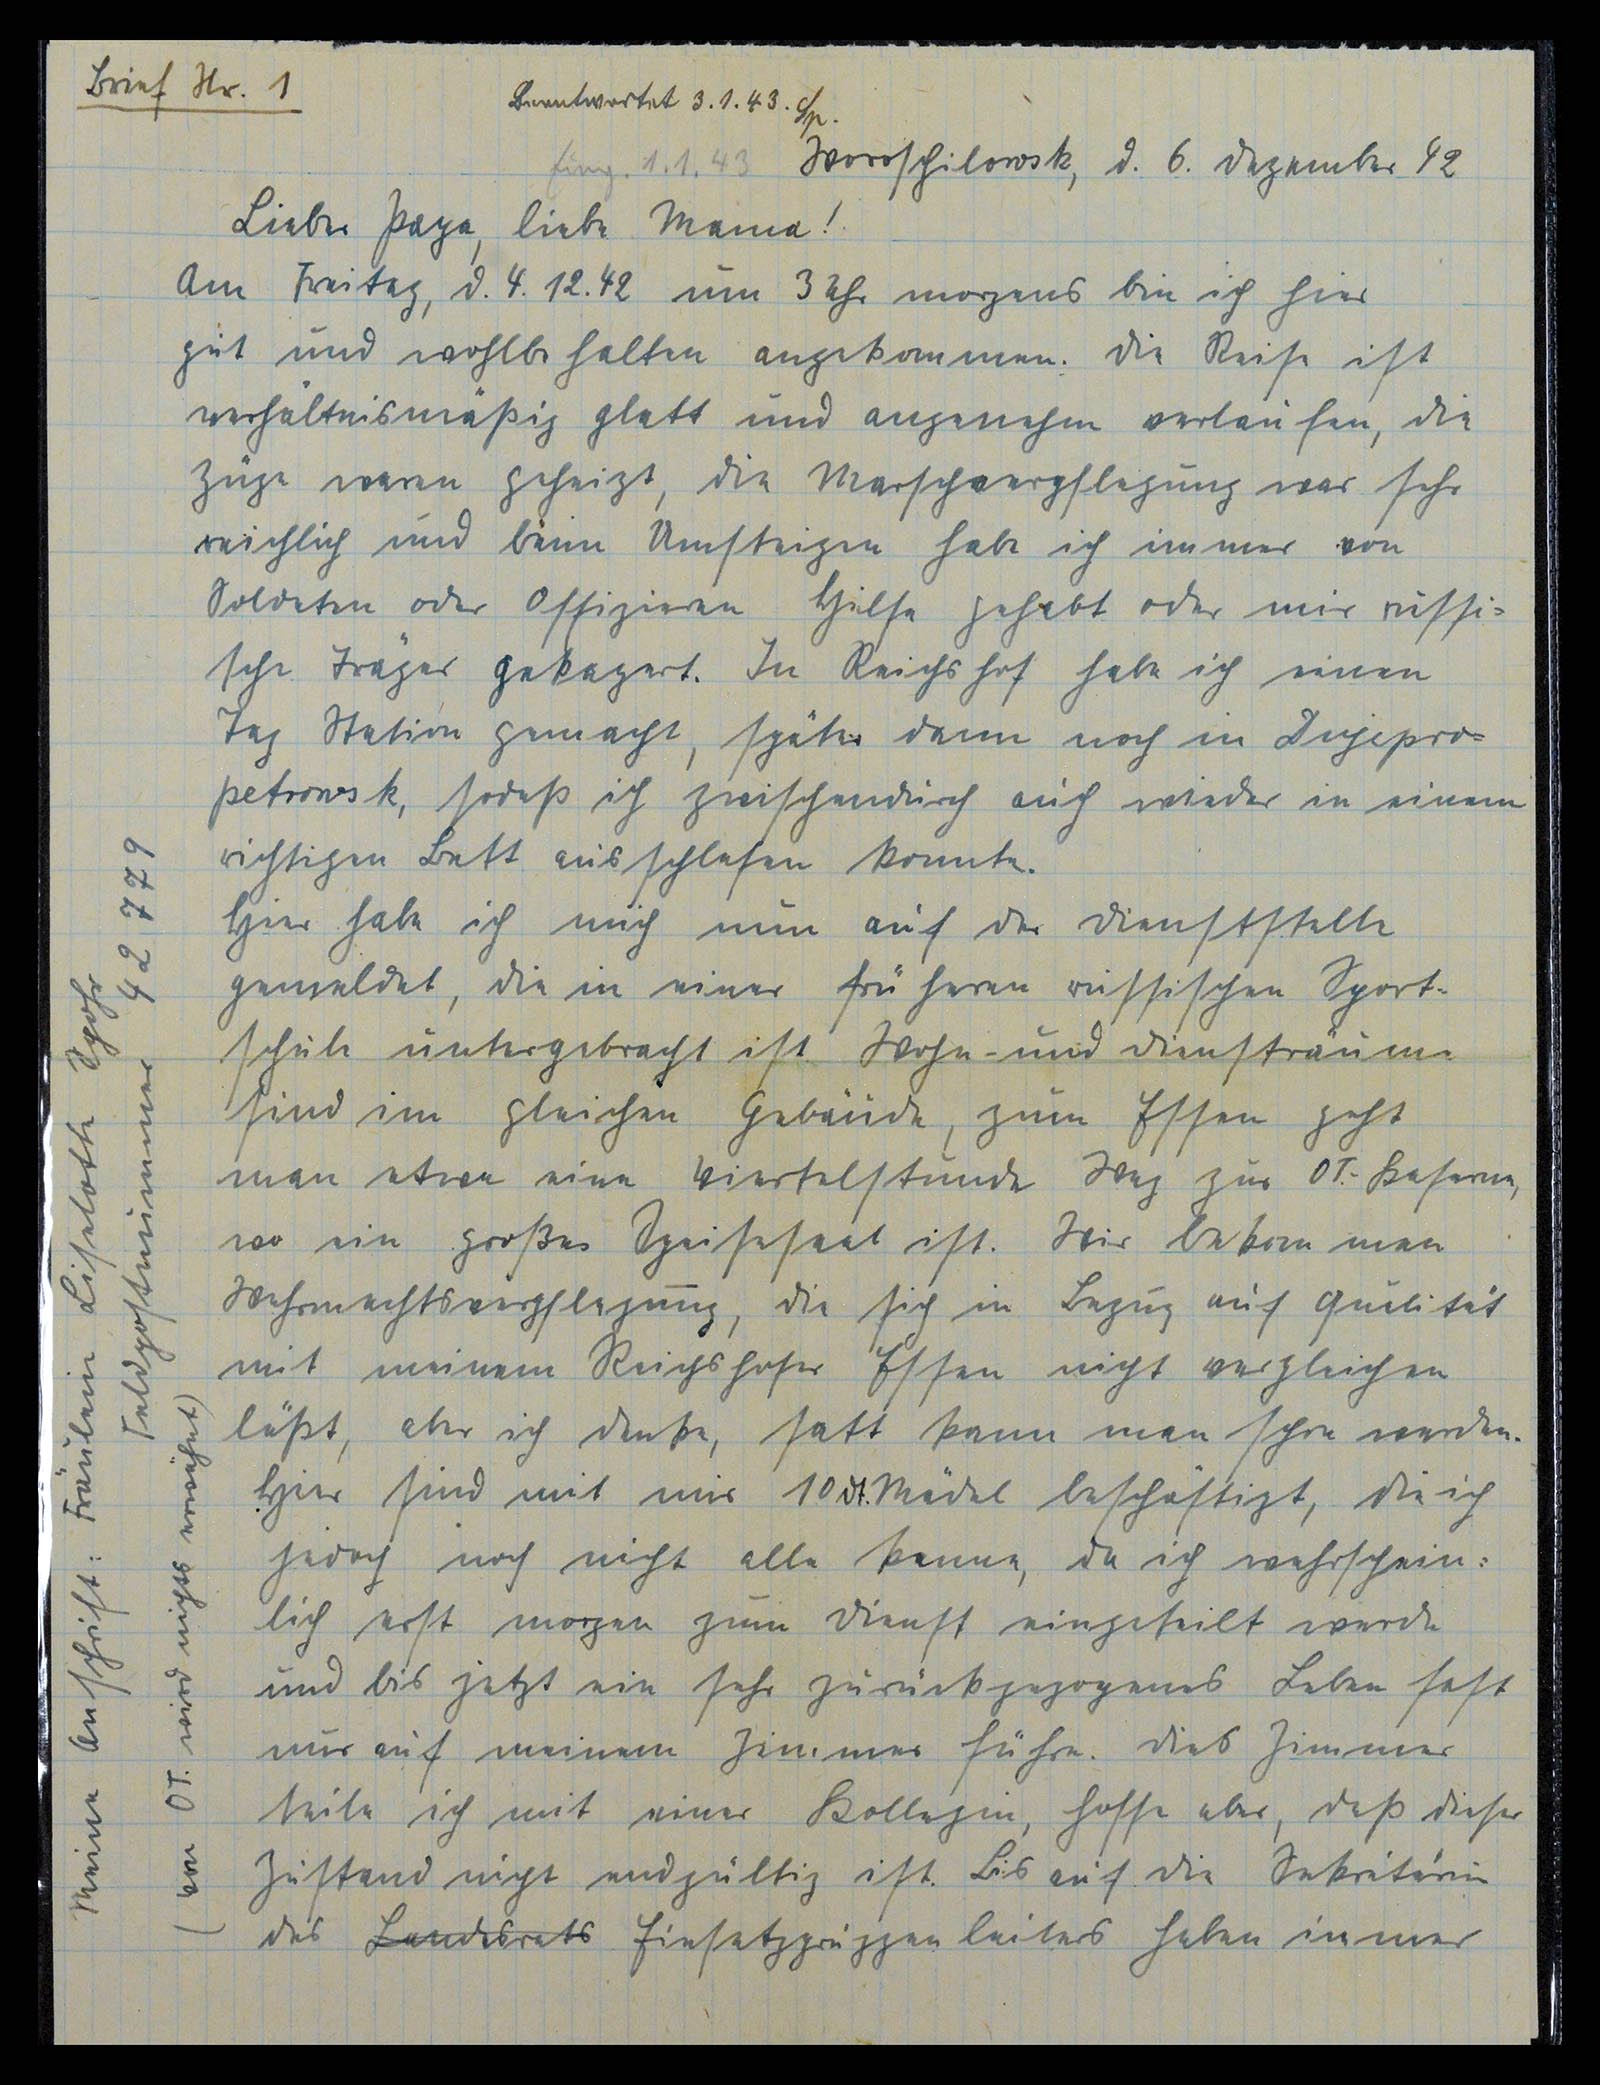 Brief Nr. 1
Beantwortet 3.1.43. Sp.
Eing. 1.1.43
Woroschilowsk, d. 6. Dezember 42
Lieber Papa, liebe Mama!
Am Freitag, d. 4.12.42 um 3 Uhr morgens bin ich hier
gut und wohlbehalten angekommen. Die Reise ist
verhältnismäßig glatt und angenehm verlaufen, die
Züge waren geheizt, die Marschverpflegung war sehr
reichlich und beim Umsteigen habe ich immer von
Soldaten oder Offizieren Hilfe gehabt oder mir russi=
sche Träger gekapert. In Reichshof habe ich einen
Tag Station gemacht, später dann noch in Dnjepro=
petrowsk, sodaß ich zwischendurch auch wieder in einem
richtigen Bett ausschlafen konnte.
Hier habe ich mich nun auf der Dienststelle
gemeldet, die in einer früheren russischen Sport-
schule untergebracht ist. Wohn- und Diensträume
sind im gleichen Gebäude, zum Essen geht
man etwa eine Viertelstunde Weg zur OT.-Kaserne,
wo ein großer Speisesaal ist. Wir bekommen
Wehrmachtsverpflegung, die sich in Bezug auf Qualität
mit meinem Reichshofer Essen nicht vergleichen
läßt, aber ich denke, satt kann man schon werden.
Hier sind mit mir 10 dt. Mädel beschäftigt, die ich
jedoch noch nicht alle kenne, da ich wahrschein=
lich erst morgen zum Dienst eingeteilt werde
und bis jetzt ein sehr zurückgezogenes Leben fast
nur auf meinem Zimmer führe. Dies Zimmer
teile ich mit einer Kollegin, hoffe aber, daß dieser
Zustand nicht endgültig ist. Bis auf die Sekretärin
des Landesrats Einsatzgruppenleiters haben immer
Meine Anschrift: Fräulein Liselotte Spohr
Feldpostnummer 42 779
(von OT. wird nichts erwähnt)